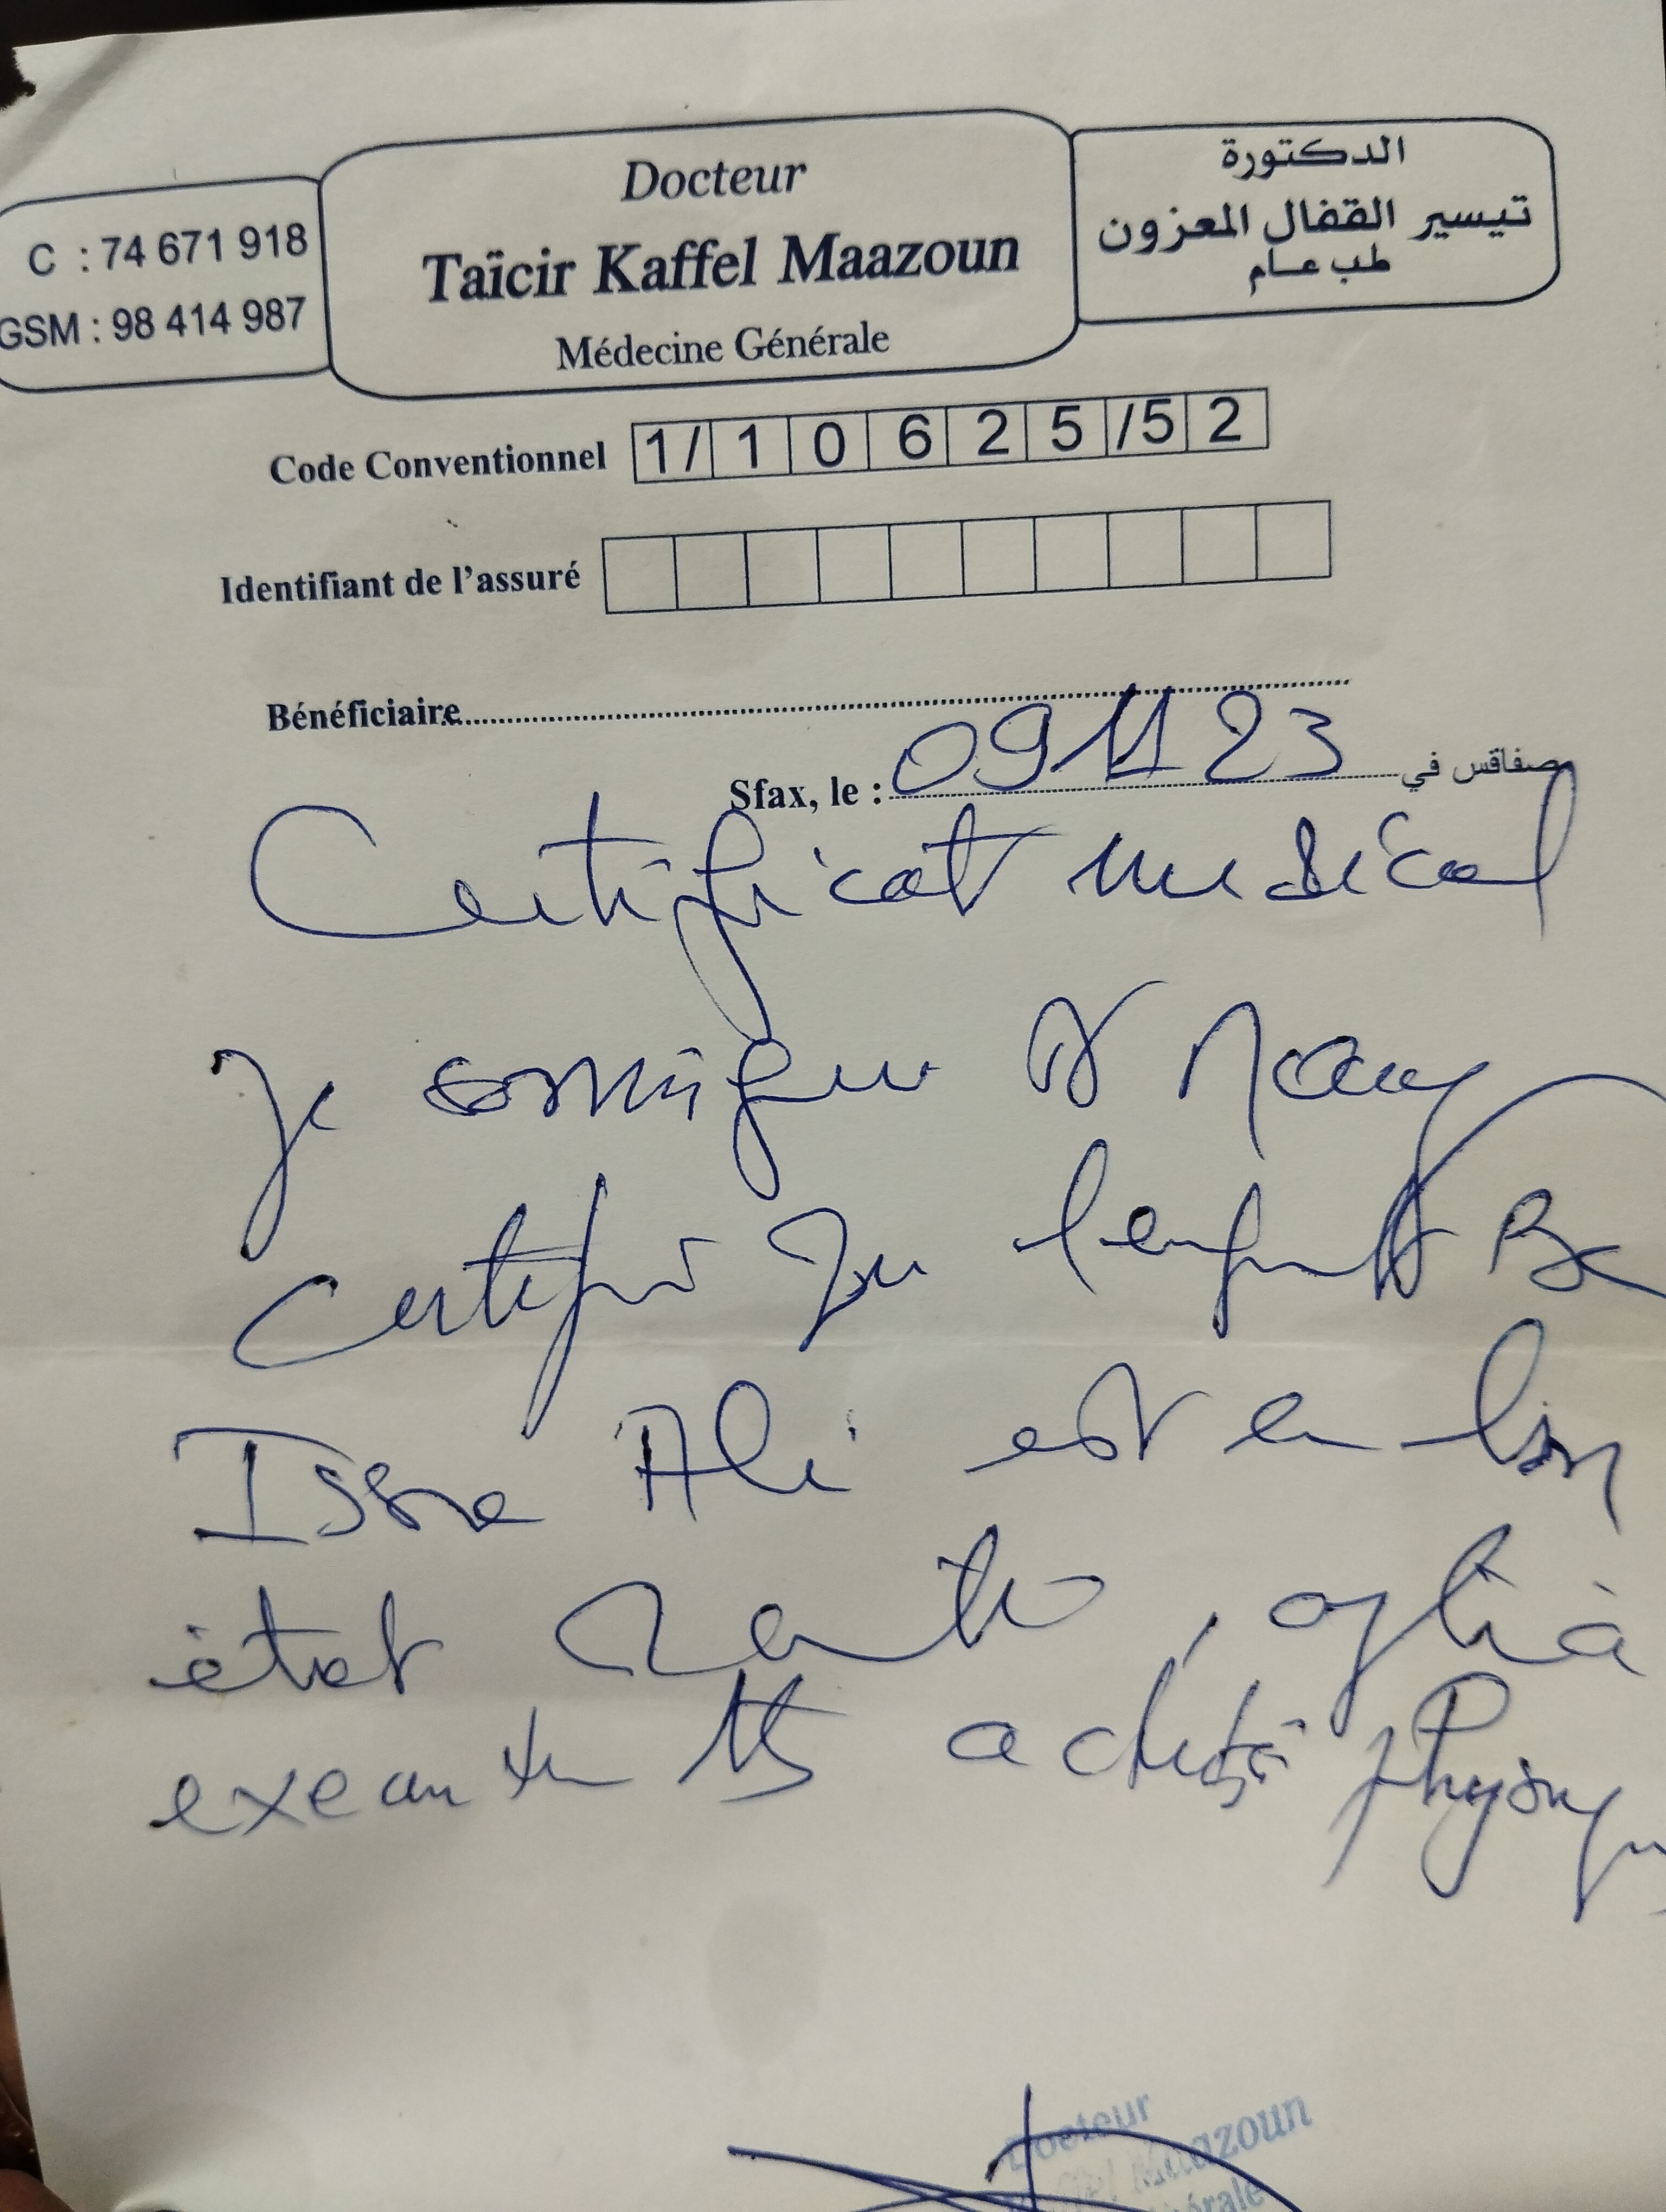 C : 74 671 918
GSM : 98 414 987
Docteur
Taïcir Kaffel Maazoun
Médecine Générale
الدكتورة
تيسير القفال المعزون
طب عام
Code Conventionnel 1/ 1 0 6 2 5 /5 2
Identifiant de l'assuré
Bénéficiaire
Sfax, le : 09 11 23 صفاقس في
Certificat medical
Je soussigner Dr
certifie que l'enfant Be
Issa Ali est en bon
état santé, apte à
exercer activité physiqu
Docteur
Maazoun